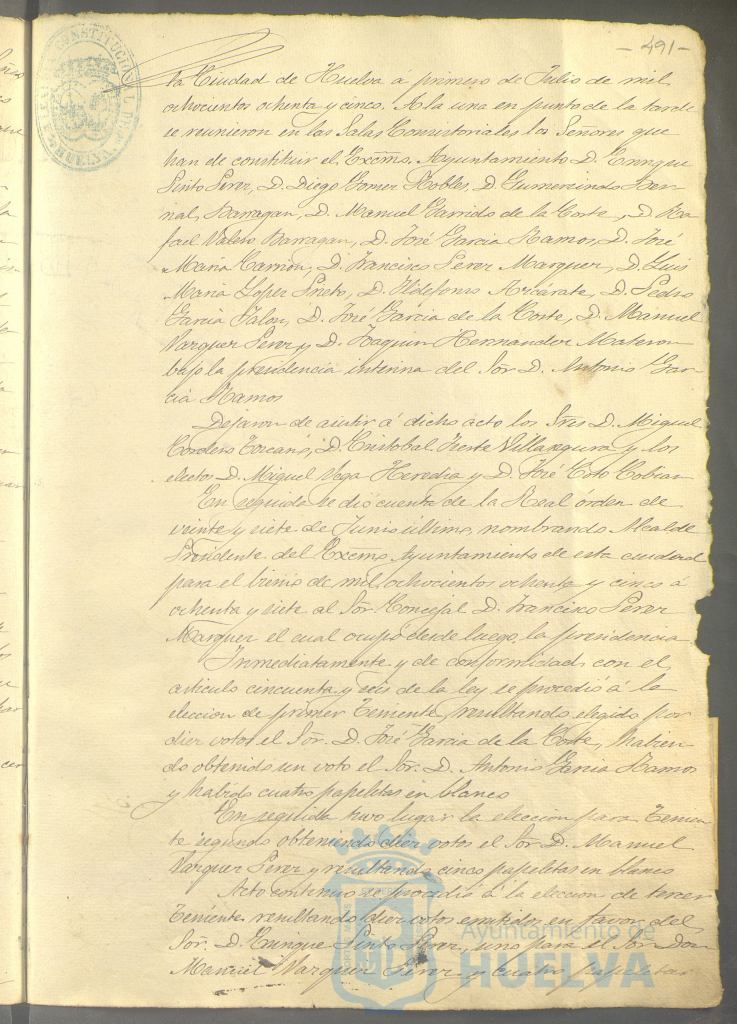 - 491 -
la Ciudad de Huelva á primero de Julio de mil
ochocientos ochenta y cinco. A la una en punto de la tarde
se reunieron en las Salas Consistoriales los Señores que
han de constituir el Excmo. Ayuntamiento D. Enrique
Pinto Perez, D. Diego Gomez Robles, D. Gumersindo Ber
nal Barragan, D. Manuel Garrido de la Corte, D. Ra
fael Valero Barragan, D. José Garcia Ramos, D. José
Maria Carrion, D. Francisco Perez Marquez, D. Luis
Maria Lopez Prieto, D. Ildefonso Azcárate, D. Pedro
Garcia Jalon, D. José Garcia de la Corte, D. Manuel
Vazquez Perez y D. Joaquin Hernandez Materon
bajo la presidencia interina del Sor. D. Antonio Gar
cia Ramos
Dejaron de asistir á dicho acto los Sres D. Miguel
Cordero D. Cristobal y los
electos D. Miguel Vega Heredia y D. José Coto Cobian
En seguida se dio cuenta de la Real órden de
veinte y siete de Junio último, nombrando Alcalde
Presidente del Excmo. Ayuntamiento de esta ciudad
para el bienio de mil ochocientos ochenta y cinco á
ochenta y siete al Sor. Concejal D. Francisco Perez
Marquez el cual ocupó desde luego la presidencia
Inmediatamente y de conformidad con el
articulo cincuenta y seis de la ley se procedió á la
eleccion de primer Teniente, resultando elegido por
diez votos el Sor. D. José Garcia de la Corte, habien
do obtenido un voto el Sor. D. Antonio Garcia Ramos
y habido cuatro papeletas en blanco
En seguida tuvo lugar la eleccion para Tenien
te segundo obteniendo diez votos el Sor D. Manuel
Vazquez Perez y resultando cinco papeletas en blanco
Acto continuo se procedió á la eleccion de tercer
Teniente resultando diez votos emitidos en favor del
Sor. D. Enrique Pinto Perez, uno para el Sor Don
Manuel Vazquez Perez y cuatro papeletas
Ayuntamiento de
HUELVA